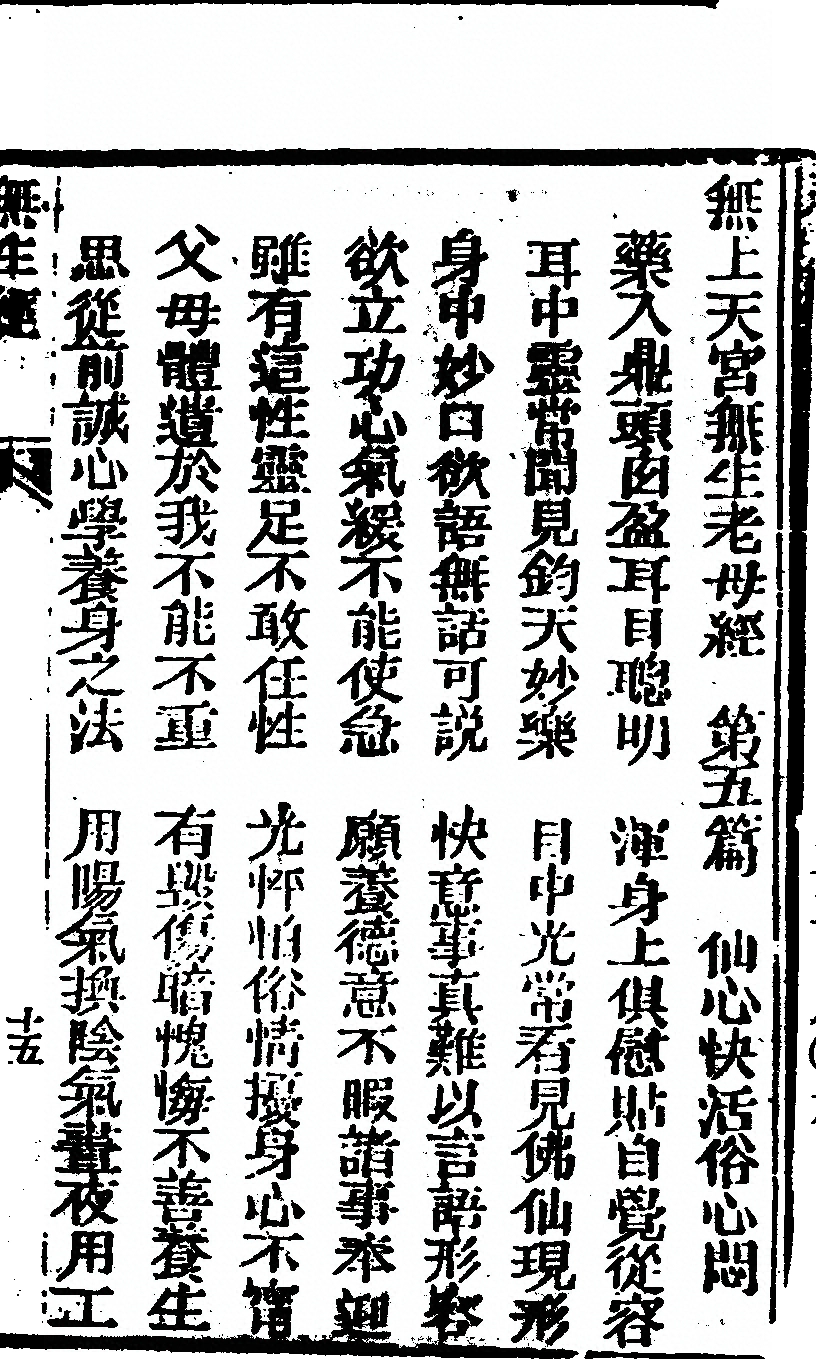 無上天宮無生老母經　第五篇　仙心快活俗心悶
藥入鼎頭囟盈耳目聰明　渾身上俱慰貼自覺從容
耳中靈常聞見鈞天妙樂　目中光常看見佛仙現形
身中妙口欲語無話可説　快意事真難以言語形容
欲立功心氣緩不能使急　願養德意不暇諸事奉迎
雖有這性靈足不敢任性　光怀怕俗情擾身心不甯
父母體遺於我不能不重　有毀傷暗愧悔不善養生
思從前誠心學養身之法　用陽氣換陰氣晝夜用工
無生經
十五